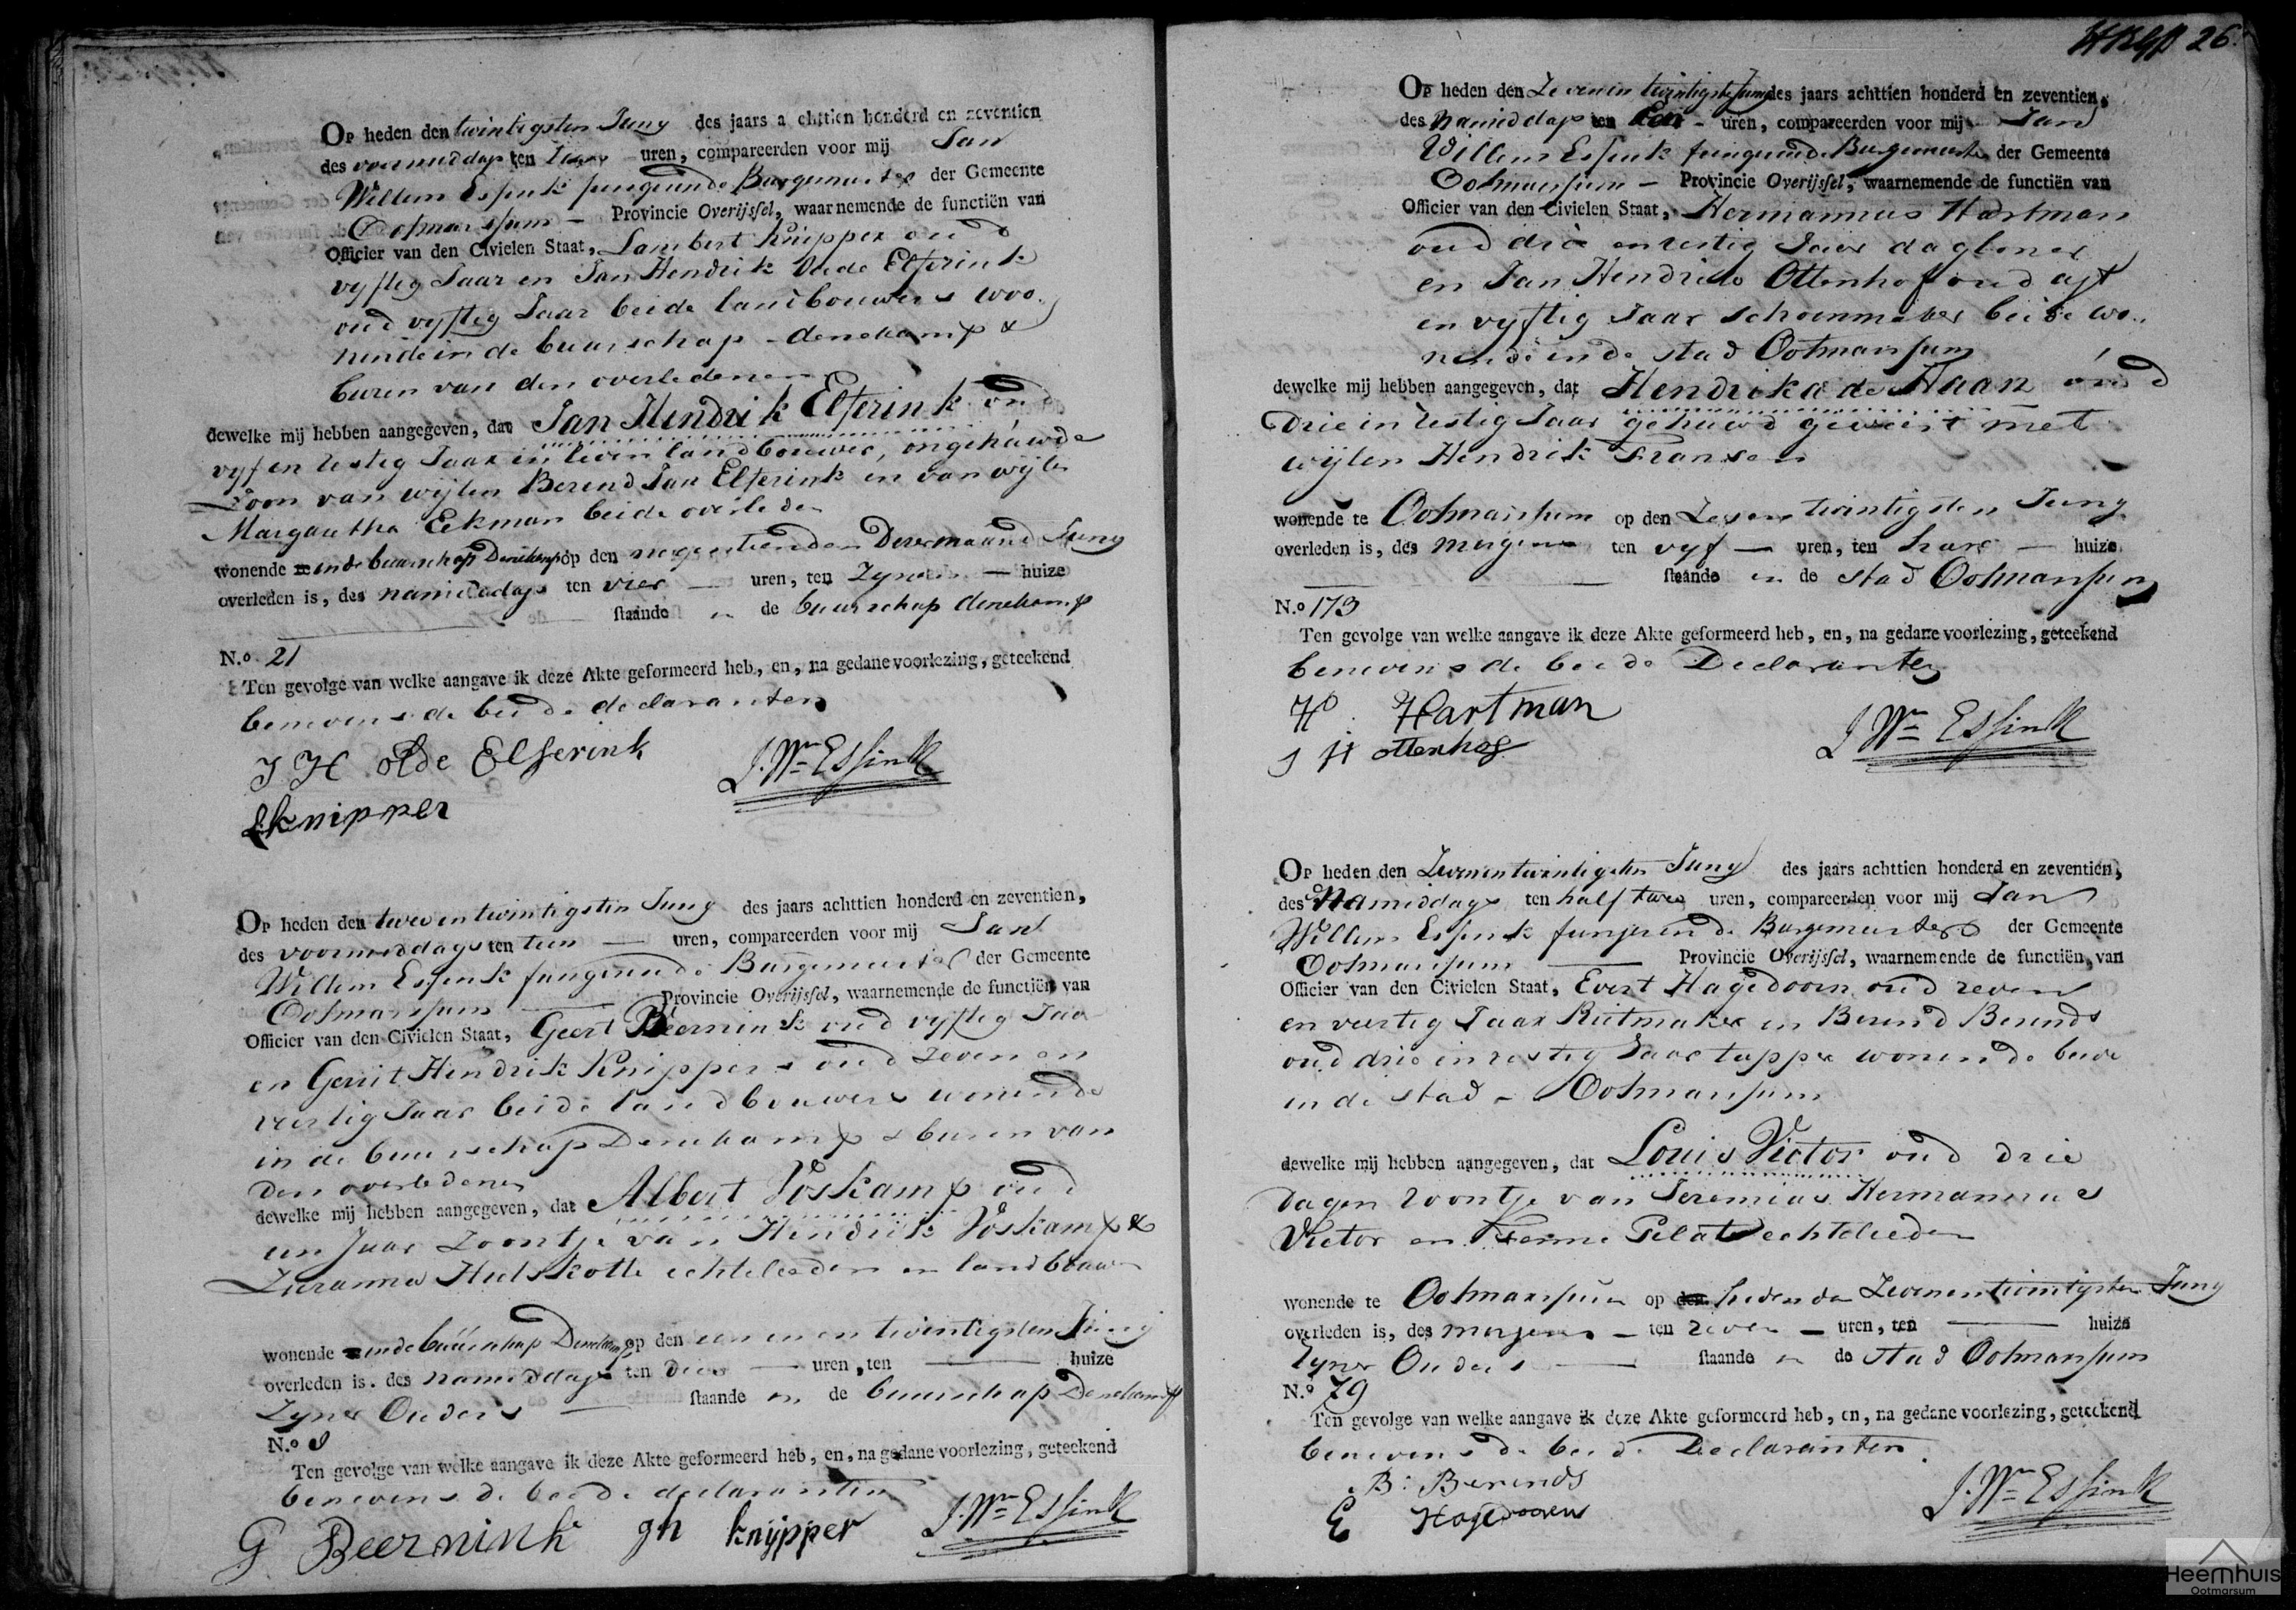 Op heden den twintigsten Juny des jaars achttien honderd en zeventien
des voormiddags ten uren, compareerden voor mij Jan
Willem Essink fungeerende Burgemeester der Gemeente
Ootmarssum – Provincie Overijssel, waarnemende de functiën van
Officier van den Civielen Staat, Lambert Knipper oud
vyftig Jaar en Jan Hendrik Olde Elferink
oud vyftig Jaar beide landbouwers woo-
nende in de buurschap Denekamp &
buren van den overledenen
dewelke mij hebben aangegeven, dat Jan Hendrik Elferink oud
vyf en testig Jaar in leven landbouwer, ongehuwde
Zoon van wijlen Berend Jan Elferink en van wijlen
Margaretha Eekman beide overleden
wonende in de buurschap Denekamp op den negentienden Dezer maand Juny
overleden is, des namiddags ten vier – uren, ten Zynen – huize
staande in de buurschap Denekamp
N.o 21
Ten gevolge van welke aangave ik deze Akte geformeerd heb, en, na gedane voorlezing, geteekend
benevens de beide declaranten
J H olde Elferink J. Wm Essink
L knipper
Op heden den twee en twintigsten Juny des jaars achttien honderd en zeventien,
des voormiddags ten tien – uren, compareerden voor mij Jan
Willem Essink fungeerende Burgemeester der Gemeente
Ootmarssum – Provincie Overijssel, waarnemende de functiën van
Officier van den Civielen Staat, Geert Beernink oud vyftig Jaar
en Gerrit Hendrik Knippers oud zeven en
veertig Jaar beide landbouwers wonende
in de buurschap Denekamp & buren van
den overledenen
dewelke mij hebben aangegeven, dat Albert Voskamp oud
een Jaar Zoontje van Hendrik Voskamp &
Zuzanna Hulskotte echtelieden en landbouwers
wonende in de buurschap Denekamp op den een en twintigsten Juny
overleden is. des namiddags ten drie – uren, ten – huize
Zyner Ouders – staande in de buurschap Denekamp
N.o 8
Ten gevolge van welke aangave ik deze Akte geformeerd heb, en, na gedane voorlezing, geteekend
benevens de beide declaranten
G Beernink gh knijpper J. Wm Essink
26.
Op heden den Zeven en twintigste Juny des jaars achttien honderd en zeventien,
des Namiddags ten Een – uren, compareerden voor mij Jan
Willem Essink fungeerende Burgemeester der Gemeente
Ootmarssum – Provincie Overijssel, waarnemende de functiën van
Officier van den Civielen Staat, Hermannus Hartman
oud drie en testig Jaar dagloner
en Jan Hendrik Ottenhof oud agt
en vyftig Jaar schoenmaker beide wo-
nende in de stad Ootmarssum
dewelke mij hebben aangegeven, dat Hendrika de Haan oud
Drie in testig Jaar gehuwd geweest met
wijlen Hendrik Fransen
wonende te Ootmarssum op den Zes en twintigsten Juny
overleden is, des morgens ten vyf – uren, ten hare – huize
– staande in de stad Ootmarssum
N.o 173
Ten gevolge van welke aangave ik deze Akte geformeerd heb, en, na gedane voorlezing, geteekend
benevens de beide Declaranten
H Hartman
J H ottenhof J Wm Essink
Op heden den Zeven en twintigsten Juny des jaars achttien honderd en zeventien,
des Namiddags ten half twee uren, compareerden voor mij Jan
Willem Essink fungerende Burgemeester der Gemeente
Ootmarssum – Provincie Overijssel, waarnemende de functiën van
Officier van den Civielen Staat, Evert Hagedoorn oud zeven
en veertig Jaar Rietmaker en Berend Berends
oud drie in testig Jaar tapper wonende beide
in de stad – Ootmarssum
dewelke mij hebben aangegeven, dat Louis Victor oud drie
dagen zoontje van Jeremias Hermannus
Victor en Fenne Pelat echtelieden
wonende te Ootmarssum op den heden den Zeven en twintigsten Juny
overleden is, des morgens – ten zeven – uren, ten – huize
Zyner Ouders – staande in de stad Ootmarssum
N.o 79
Ten gevolge van welke aangave ik deze Akte geformeerd heb, en, na gedane voorlezing, geteekend
benevens de beide Declaranten
B: Berends
E Hagedoorn J. Wm Essink
Heemhuis
Ootmarsum